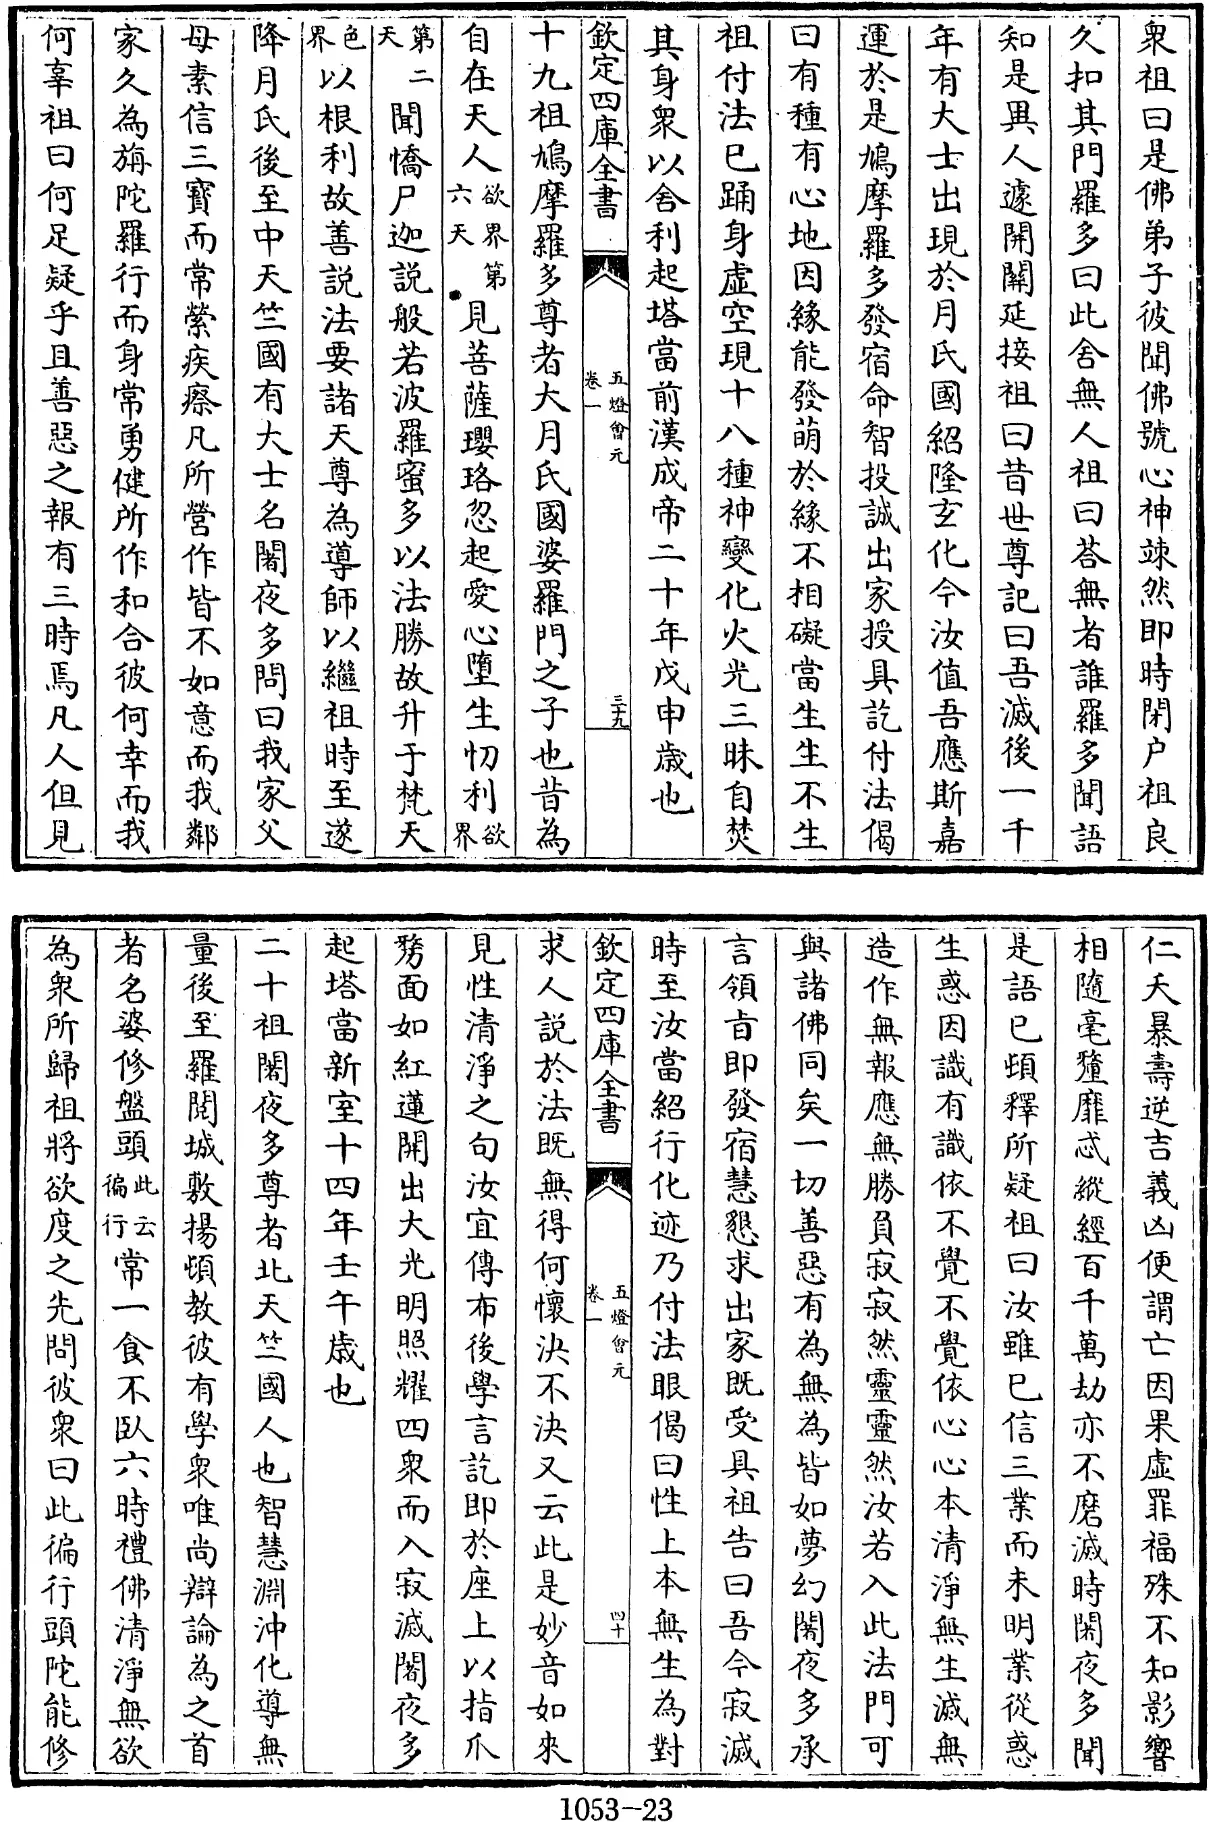 衆祖曰是佛弟子彼聞佛號心神竦然即時閉户祖良
久扣其門羅多曰此舍無人祖曰荅無者誰羅多聞語
知是異人遽開關延接祖曰昔世尊記曰吾滅後一千
年有大士出現於月氏國紹隆玄化今汝值吾應斯嘉
運於是鳩摩羅多發宿命智投誠出家授具訖付法偈
曰有種有心地因緣能發萌於緣不相礙當生生不生
祖付法已踊身虚空現十八種神變化火光三昧自焚
其身衆以舍利起塔當前漢成帝二十年戊申歲也
欽定四庫全書 五燈會元卷一 三十九
十九祖鳩摩羅多尊者大月氏國婆羅門之子也昔為
自在天人欲界第六天見菩薩瓔珞忽起愛心墮生忉利欲界
第二天聞憍尸迦説般若波羅蜜多以法勝故升于梵天
色界以根利故善説法要諸天尊為導師以繼祖時至遂
降月氏後至中天竺國有大士名闍夜多問曰我家父
母素信三寳而常縈疾瘵凡所營作皆不如意而我鄰
家久為旃陀羅行而身常勇健所作和合彼何幸而我
何辜祖曰何足疑乎且善惡之報有三時焉凡人但見
仁夭暴壽逆吉義凶便謂亡因果虚罪福殊不知影響
相隨毫釐靡忒縱經百千萬劫亦不磨滅時闍夜多聞
是語已頓釋所疑祖曰汝雖已信三業而未明業從惑
生惑因識有識依不覺不覺依心心本清淨無生滅無
造作無報應無勝負寂寂然靈靈然汝若入此法門可
與諸佛同矣一切善惡有為無為皆如夢幻闍夜多承
言領旨即發宿慧懇求出家既受具祖告曰吾今寂滅
時至汝當紹行化迹乃付法眼偈曰性上本無生為對
欽定四庫全書 五燈會元卷一 四十
求人説於法既無得何懷決不決又云此是妙音如來
見性清淨之句汝宜傳布後學言訖即於座上以指爪
剺面如紅蓮開出大光明照耀四衆而入寂滅闍夜多
起塔當新室十四年壬午歲也
二十祖闍夜多尊者北天竺國人也智慧淵沖化導無
量後至羅閱城敷揚頓教彼有學衆唯尚辯論為之首
者名婆修盤頭此云徧行常一食不臥六時禮佛清淨無欲
為衆所歸祖將欲度之先問彼衆曰此徧行頭陀能修
1053-23